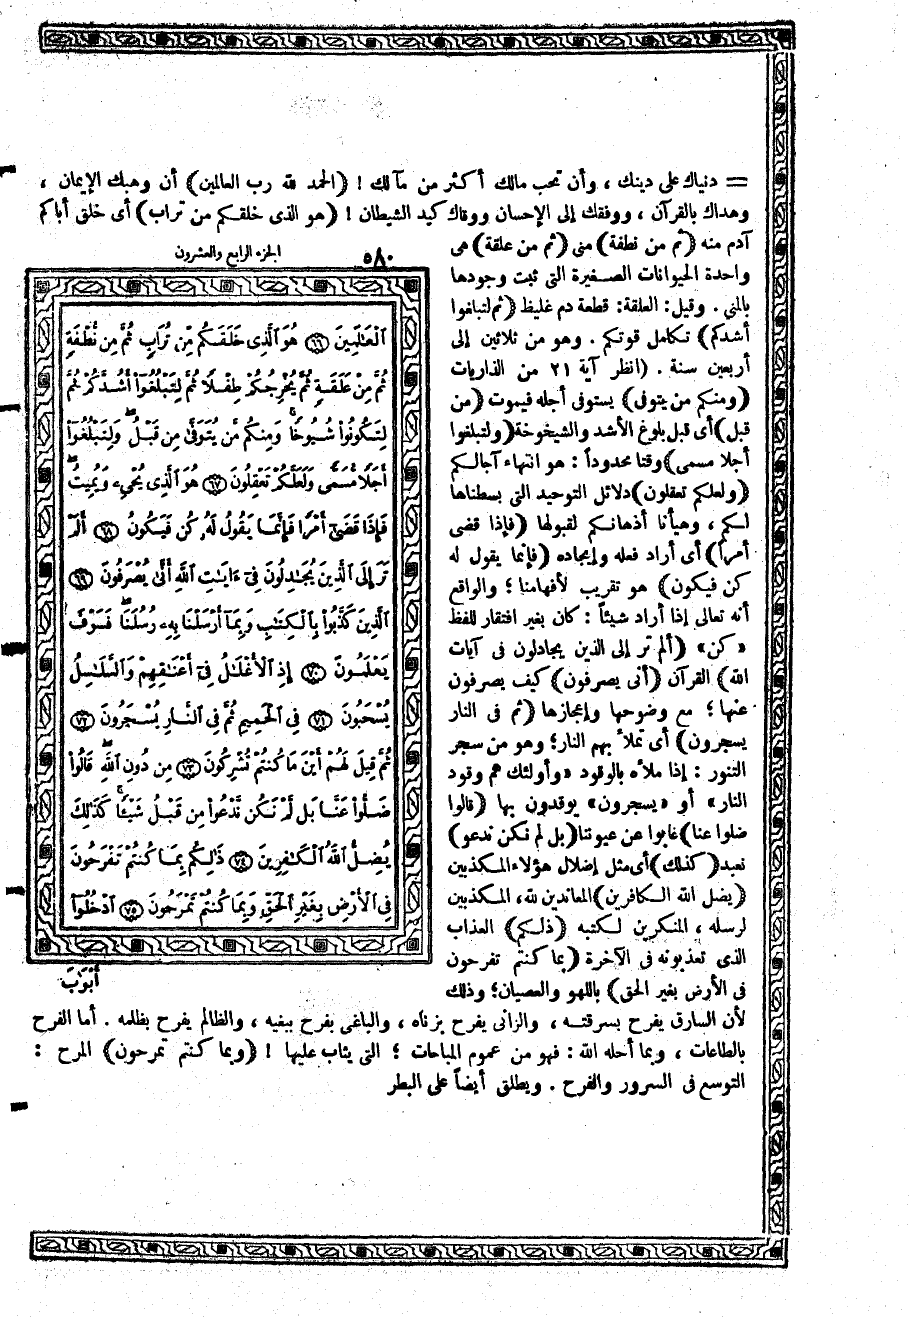 = دنياك على دينك ، وأن تحب مالك أكثر من مآلك ! (الحمد لله رب العالمين) أن وهبك الإيمان ،
وهداك بالقرآن ، ووفقك إلى الإحسان ووقاك كيد الشيطان ! (هو الذى خلقكم من تراب) أى خلق أباكم
آدم منه (ثم من نطفة) منى (ثم من علقة) هى
واحدة الحيوانات الصغيرة التى ثبت وجودها
بالمنى . وقيل: العلقة: قطعة دم غليظ (ثم لتبلغوا
أشدكم) تكامل قوتكم . وهو من ثلاثين إلى
أربعين سنة . (انظر آية ٢١ من الذاريات
(ومنكم من يتوفى) يستوفى أجله فيموت (من
قبل) أى قبل بلوغ الأشد والشيخوخة (ولتبلغوا
أجلا مسمى) وقتا محدوداً : هو انتهاء آجالكم
(ولعلكم تعقلون) دلائل التوحيد التى بسطناها
لكم ، وهيأنا أذهانكم لقبولها (فإذا قضى
أمراً) أى أراد فعله وإيجاده (فإنما يقول له
كن فيكون) هو تقريب لأفهامنا ؛ والواقع
أنه تعالى إذا أراد شيئاً : كان بغير افتقار للفظ
«كن» (ألم تر إلى الذين يجادلون فى آيات
الله) القرآن (أنى يصرفون) كيف يصرفون
عنها ؛ مع وضوحها وإعجازها (ثم فى النار
يسجرون) أى تملأ بهم النار؛ وهو من سجر
التنور : إذا ملأه بالوقود «وأولئك هم وقود
النار» أو «يسجرون» يوقدون بها (قالوا
ضلوا عنا) غابوا عن عيوننا (بل لم نكن ندعو)
نعبد (كذلك) أى مثل إضلال هؤلاء المكذبين
(يضل الله الكافرين) المعاندين لله، المكذبين
لرسله ، المنكرين لكتبه (ذلكم) العذاب
الذى تعذبونه فى الآخرة (بما كنتم تفرحون
فى الأرض بغير الحق) باللهو والعصيان؛ وذلك
الجزء الرابع والعشرون
٥٨٠
ٱلْعَٰلَمِينَ ٦٦ هُوَ ٱلَّذِى خَلَقَكُم مِّن تُرَابٍ ثُمَّ مِن نُّطْفَةٍ
ثُمَّ مِنْ عَلَقَةٍ ثُمَّ يُخْرِجُكُمْ طِفْلًا ثُمَّ لِتَبْلُغُوٓا۟ أَشُدَّكُمْ ثُمَّ
لِتَكُونُوا۟ شُيُوخًا ۚ وَمِنكُم مَّن يُتَوَفَّىٰ مِن قَبْلُ ۖ وَلِتَبْلُغُوٓا۟
أَجَلًا مُّسَمًّى وَلَعَلَّكُمْ تَعْقِلُونَ ٦٧ هُوَ ٱلَّذِى يُحْىِۦ وَيُمِيتُ ۖ
فَإِذَا قَضَىٰٓ أَمْرًا فَإِنَّمَا يَقُولُ لَهُۥ كُن فَيَكُونُ ٦٨ أَلَمْ
تَرَ إِلَى ٱلَّذِينَ يُجَٰدِلُونَ فِىٓ ءَايَٰتِ ٱللَّهِ أَنَّىٰ يُصْرَفُونَ ٦٩
ٱلَّذِينَ كَذَّبُوا۟ بِٱلْكِتَٰبِ وَبِمَآ أَرْسَلْنَا بِهِۦ رُسُلَنَا ۖ فَسَوْفَ
يَعْلَمُونَ ٧٠ إِذِ ٱلْأَغْلَٰلُ فِىٓ أَعْنَٰقِهِمْ وَٱلسَّلَٰسِلُ
يُسْحَبُونَ ٧١ فِى ٱلْحَمِيمِ ثُمَّ فِى ٱلنَّارِ يُسْجَرُونَ ٧٢
ثُمَّ قِيلَ لَهُمْ أَيْنَ مَا كُنتُمْ تُشْرِكُونَ ٧٣ مِن دُونِ ٱللَّهِ ۖ قَالُوا۟
ضَلُّوا۟ عَنَّا بَل لَّمْ نَكُن نَّدْعُوا۟ مِن قَبْلُ شَيْـًٔا ۚ كَذَٰلِكَ
يُضِلُّ ٱللَّهُ ٱلْكَٰفِرِينَ ٧٤ ذَٰلِكُم بِمَا كُنتُمْ تَفْرَحُونَ
فِى ٱلْأَرْضِ بِغَيْرِ ٱلْحَقِّ وَبِمَا كُنتُمْ تَمْرَحُونَ ٧٥ ٱدْخُلُوٓا۟
أَبْوَٰبَ
لأن السارق يفرح بسرقته ، والزانى يفرح بزناه ، والباغى يفرح ببغيه ، والظالم يفرح بظلمه . أما الفرح
بالطاعات ، وبما أحله الله : فهو من عموم المباحات ؛ التى يثاب عليها ! (وبما كنتم تمرحون) المرح :
التوسع فى السرور والفرح . ويطلق أيضاً على البطر